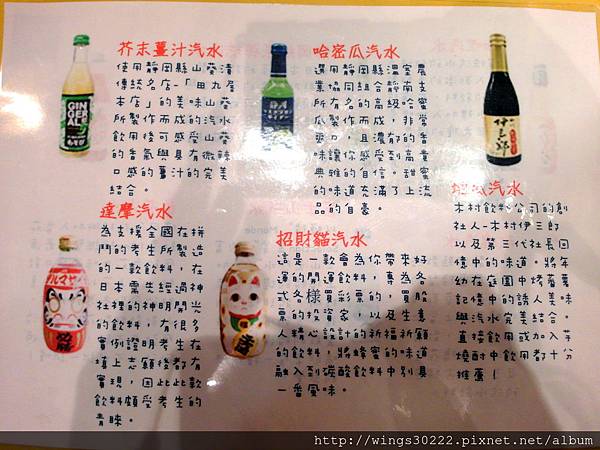 芥末薑汁汽水
使用靜岡縣山葵漬
傳統名店-「田丸屋
本店」的美味山葵
所製作而成的汽水
飲用後可感受山葵
的香氣與具有微辣
口感的薑汁的完美
結合。
哈密瓜汽水
選用靜岡縣溫室農
業協同組合高級支
所有名的靜岡哈密
瓜製作而成，非常
爽口且濃郁的香
味讓你感受到高貴
典雅的自信。甜蜜
的味道充滿了上流
品的自豪。
達摩汽水
為支援全國在拼
鬥的考生所製造
的一款飲料，在
日本需先經過神
社裡的神明開光
的飲料，有很多
實例證明考生在
填上志願後都有
實現，因此此款
飲料頗受考生的
青睞。
招財貓汽水
這是一款會為你帶來好
運的開運飲料，專為各
式各樣買彩票的，買股
票的投資家，以及生意
人精心設計的祈福祈願
的飲料，將蜂蜜的味道
融入到碳酸飲料中別具
一番風味。
地瓜汽水
木村飲料公司的創
社人-木村伊三郎
以及第三代社長回
憶中的味道。將年
幼在庭園中烤蕃薯
記憶中的誘人美味
與汽水完美結合。
直接飲用或加入芋
燒酎中飲用都十分
推薦！
GINGER
ALE
伊三郎
http://wings30222.pixnet.net/album